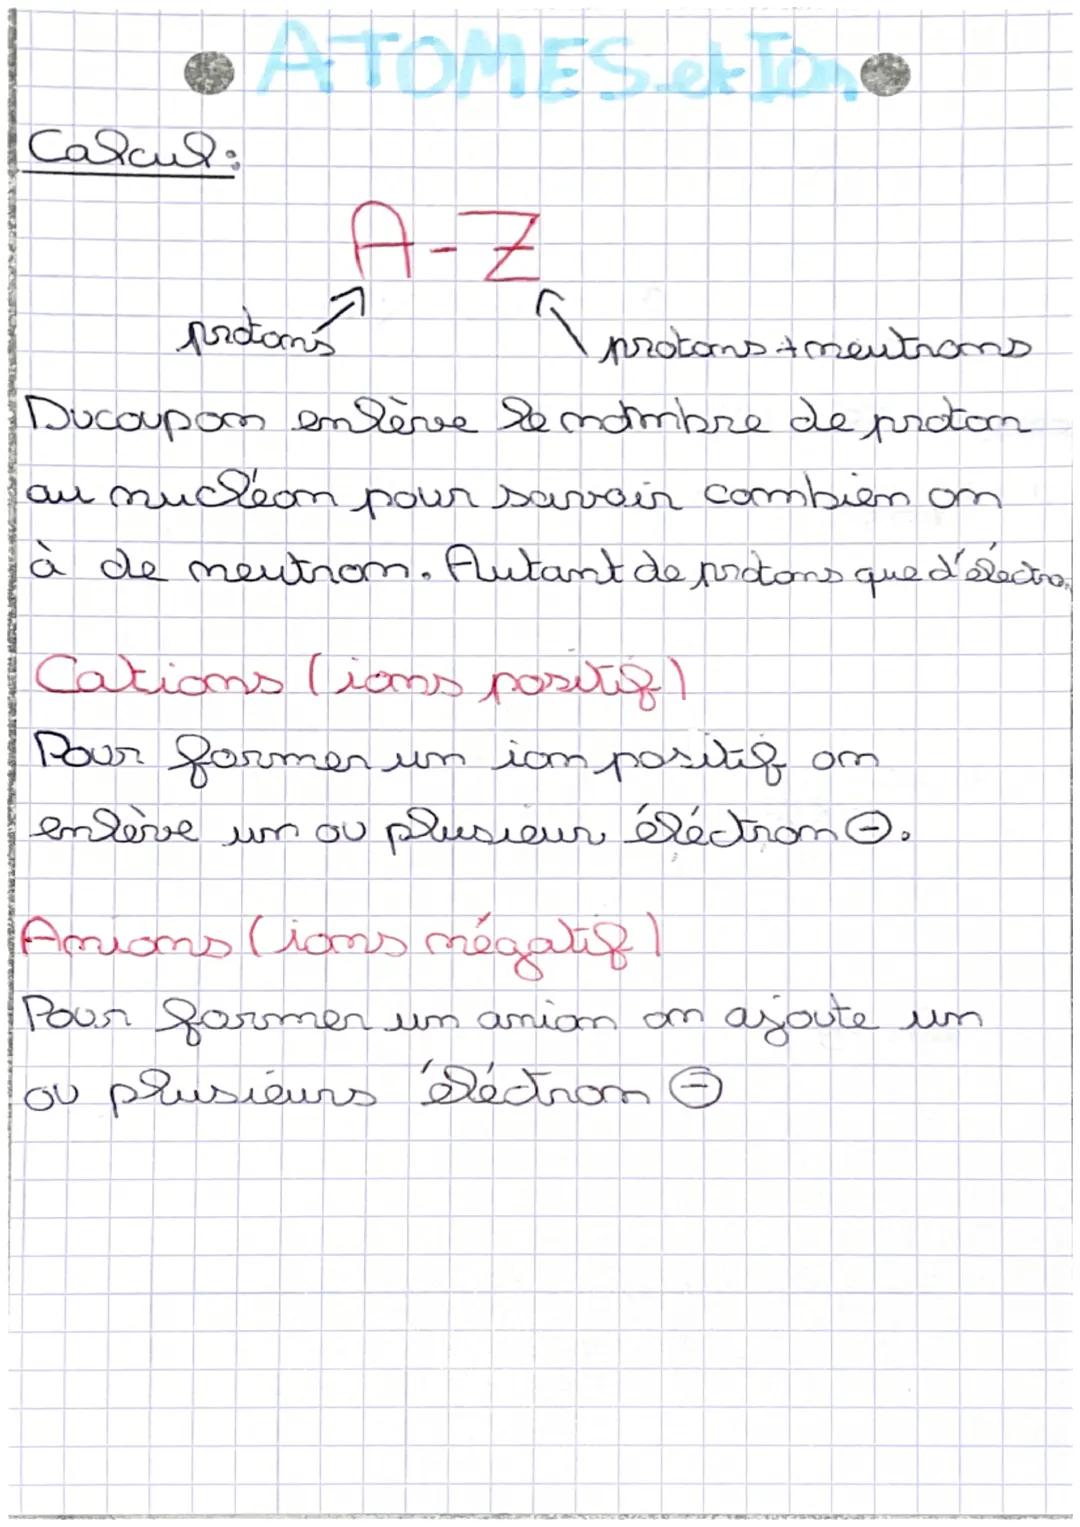 ATOMES et Ion
Calcul:
A-Z
protons
protons + neutrons
Ducoup on enlève le nombre de proton
au nucléon pour savoir combien on
à de neutron. Autant de protons que d'électro
Cations (ions positif)
Pour former un ion positif on
enlève un ou plusieur éléctron ⊖.
Anions (ions négatif)
Pour former un anion on ajoute un
ou plusieurs éléctron ⊖